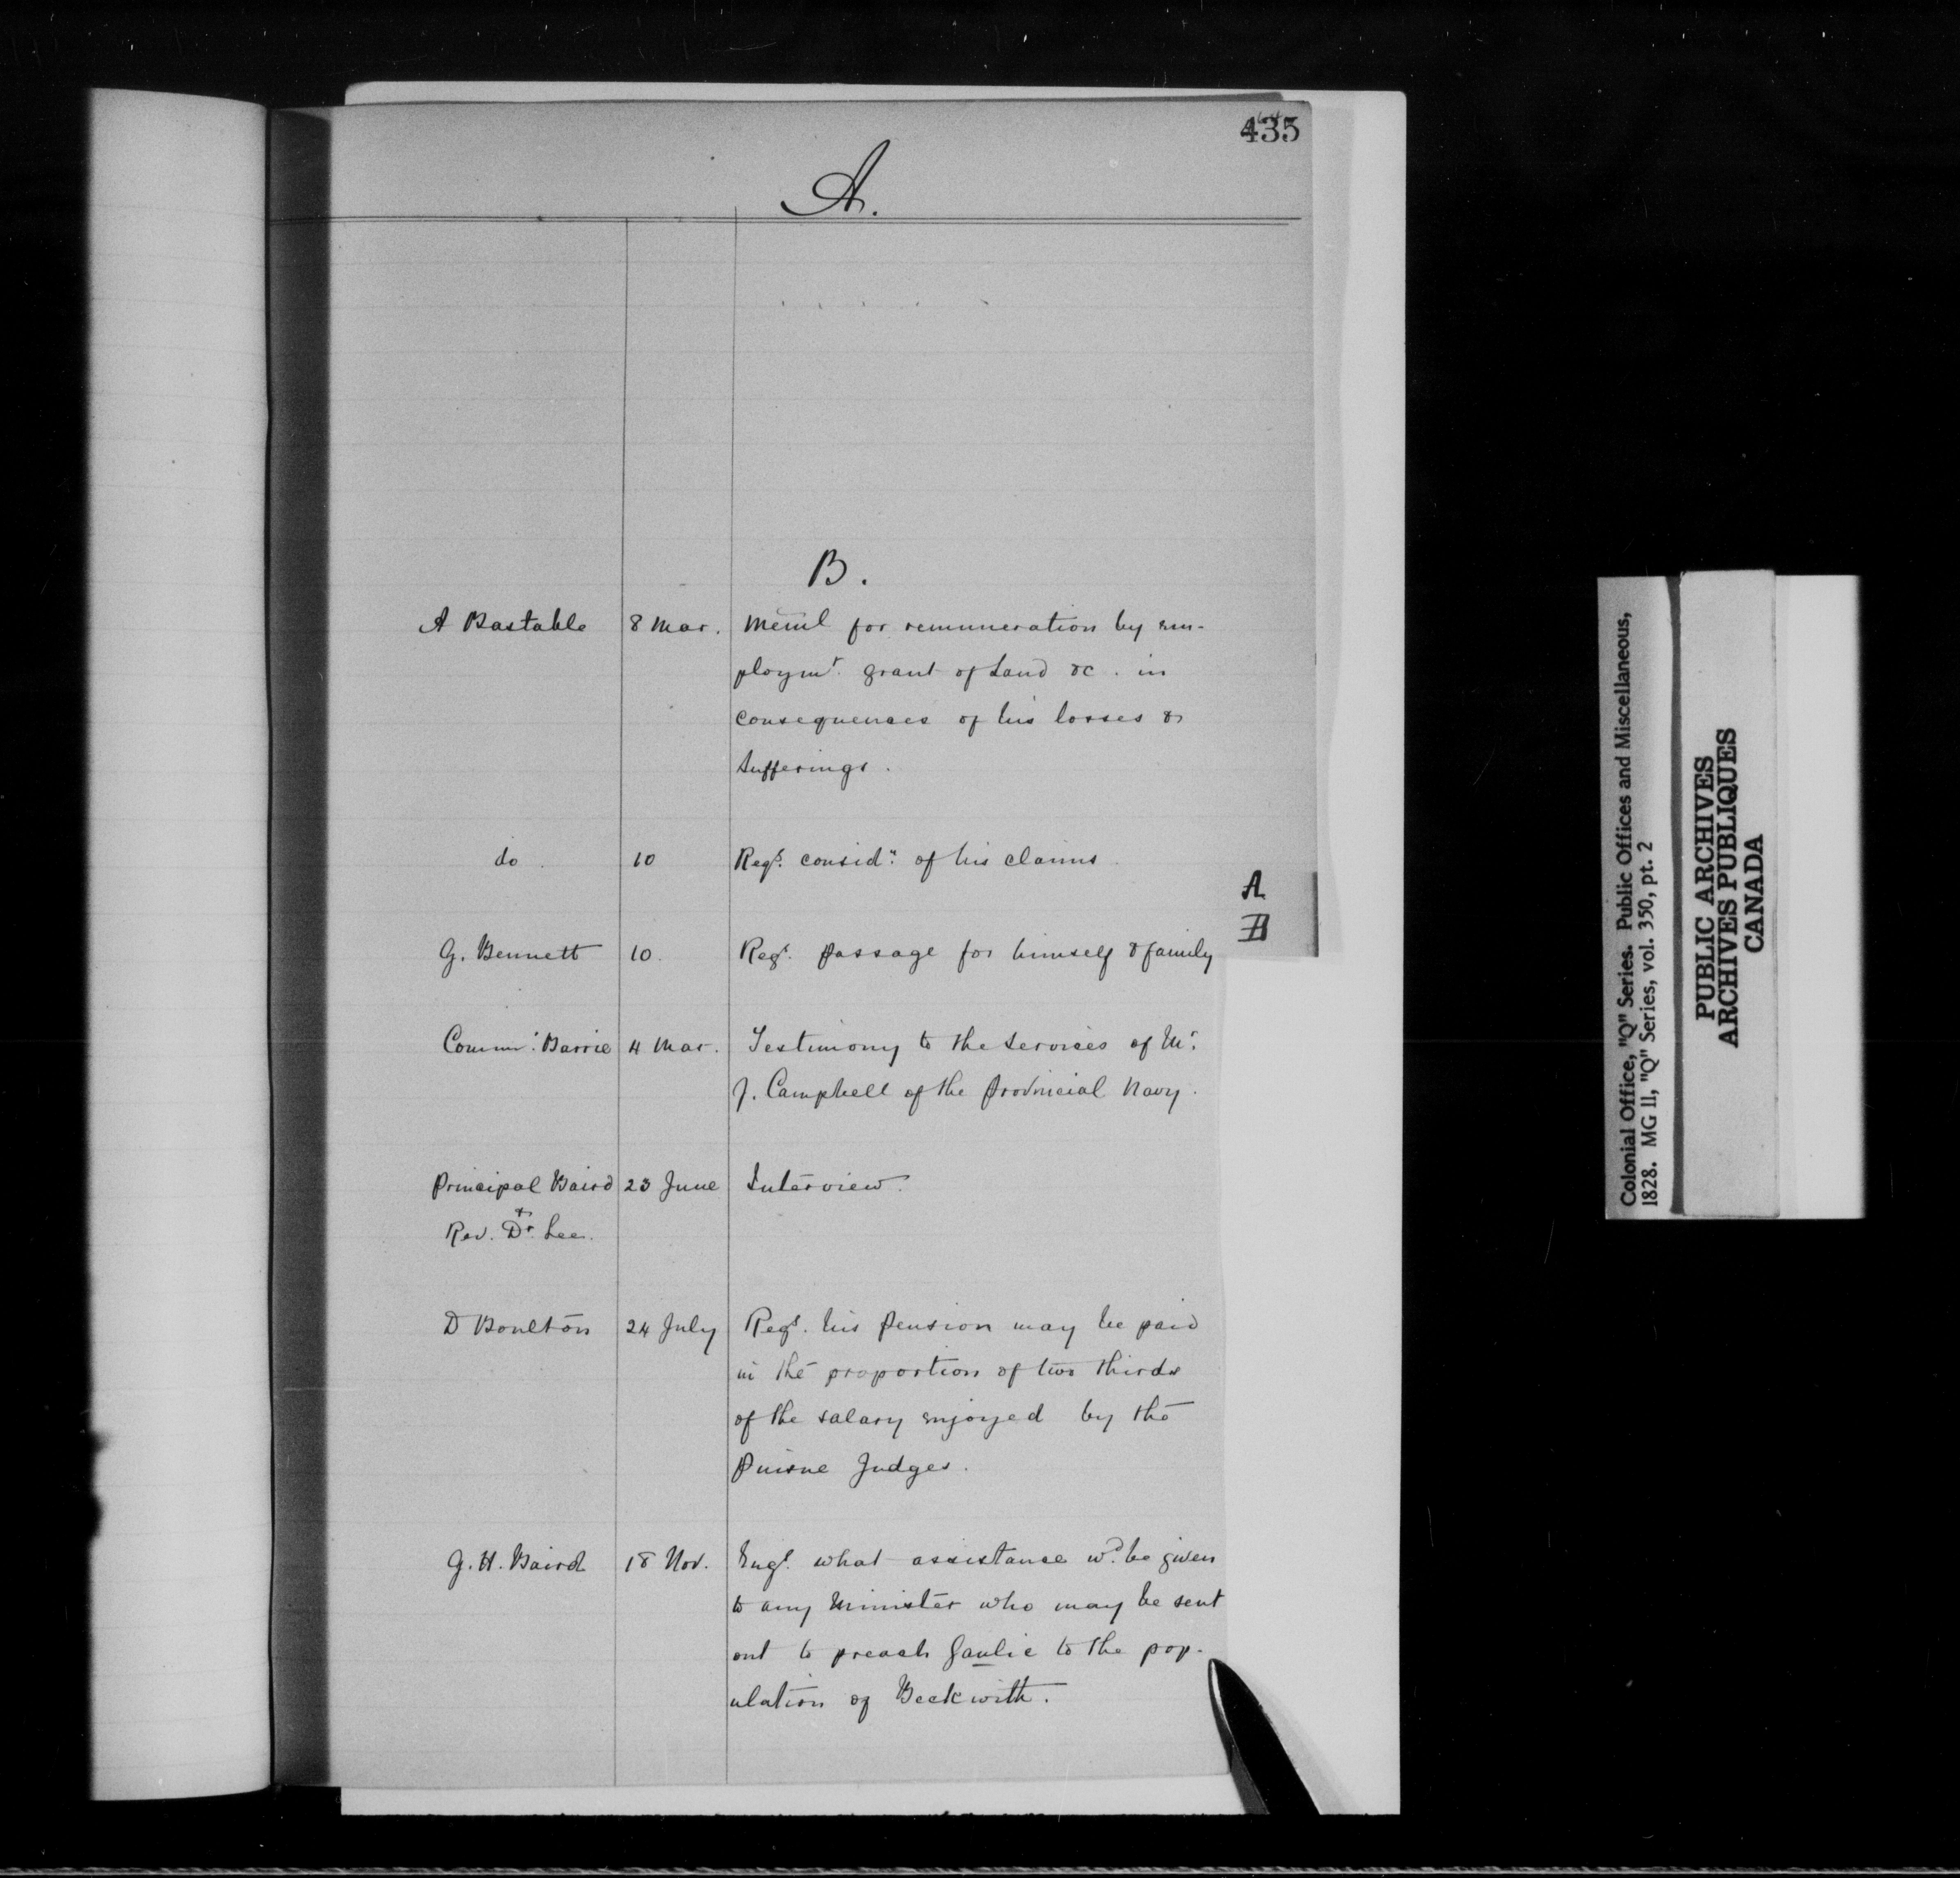 435
A.
B.
A Bastable 8 Mar. Meml for remuneration by em-
ploymt. grant of Land &c. in
consequences of his losses &
sufferings.
do. 10 Reqs. considn. of his claims.
A
B
G. Bennett 10. Reqs. passage for himself & family
Commr. Barrie 4 Mar. Testimony to the services of Mr.
J. Campbell of the Provincial Navy.
Principal Baird 23 June Interview.
&
Rev. Dr. Lee.
D Boulton 24 July Reqs. his pension may be paid
in the proportion of two thirds
of the salary enjoyed by the
Puisne Judges.
G. H. Baird 18 Nov. Enqs. what assistance wd. be given
to any Minister who may be sent
out to preach Gaulic to the pop-
ulation of Beckwith.
Colonial Office, "Q" Series. Public Offices and Miscellaneous,
1828. MG 11, "Q" Series, vol. 350, pt. 2
PUBLIC ARCHIVES
ARCHIVES PUBLIQUES
CANADA